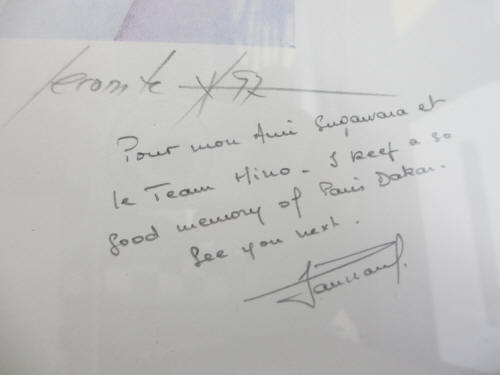 Pour mon Ami Sugawara et
le Team Hino - I keep a so
good memory of Paris Dakar.
See you next.